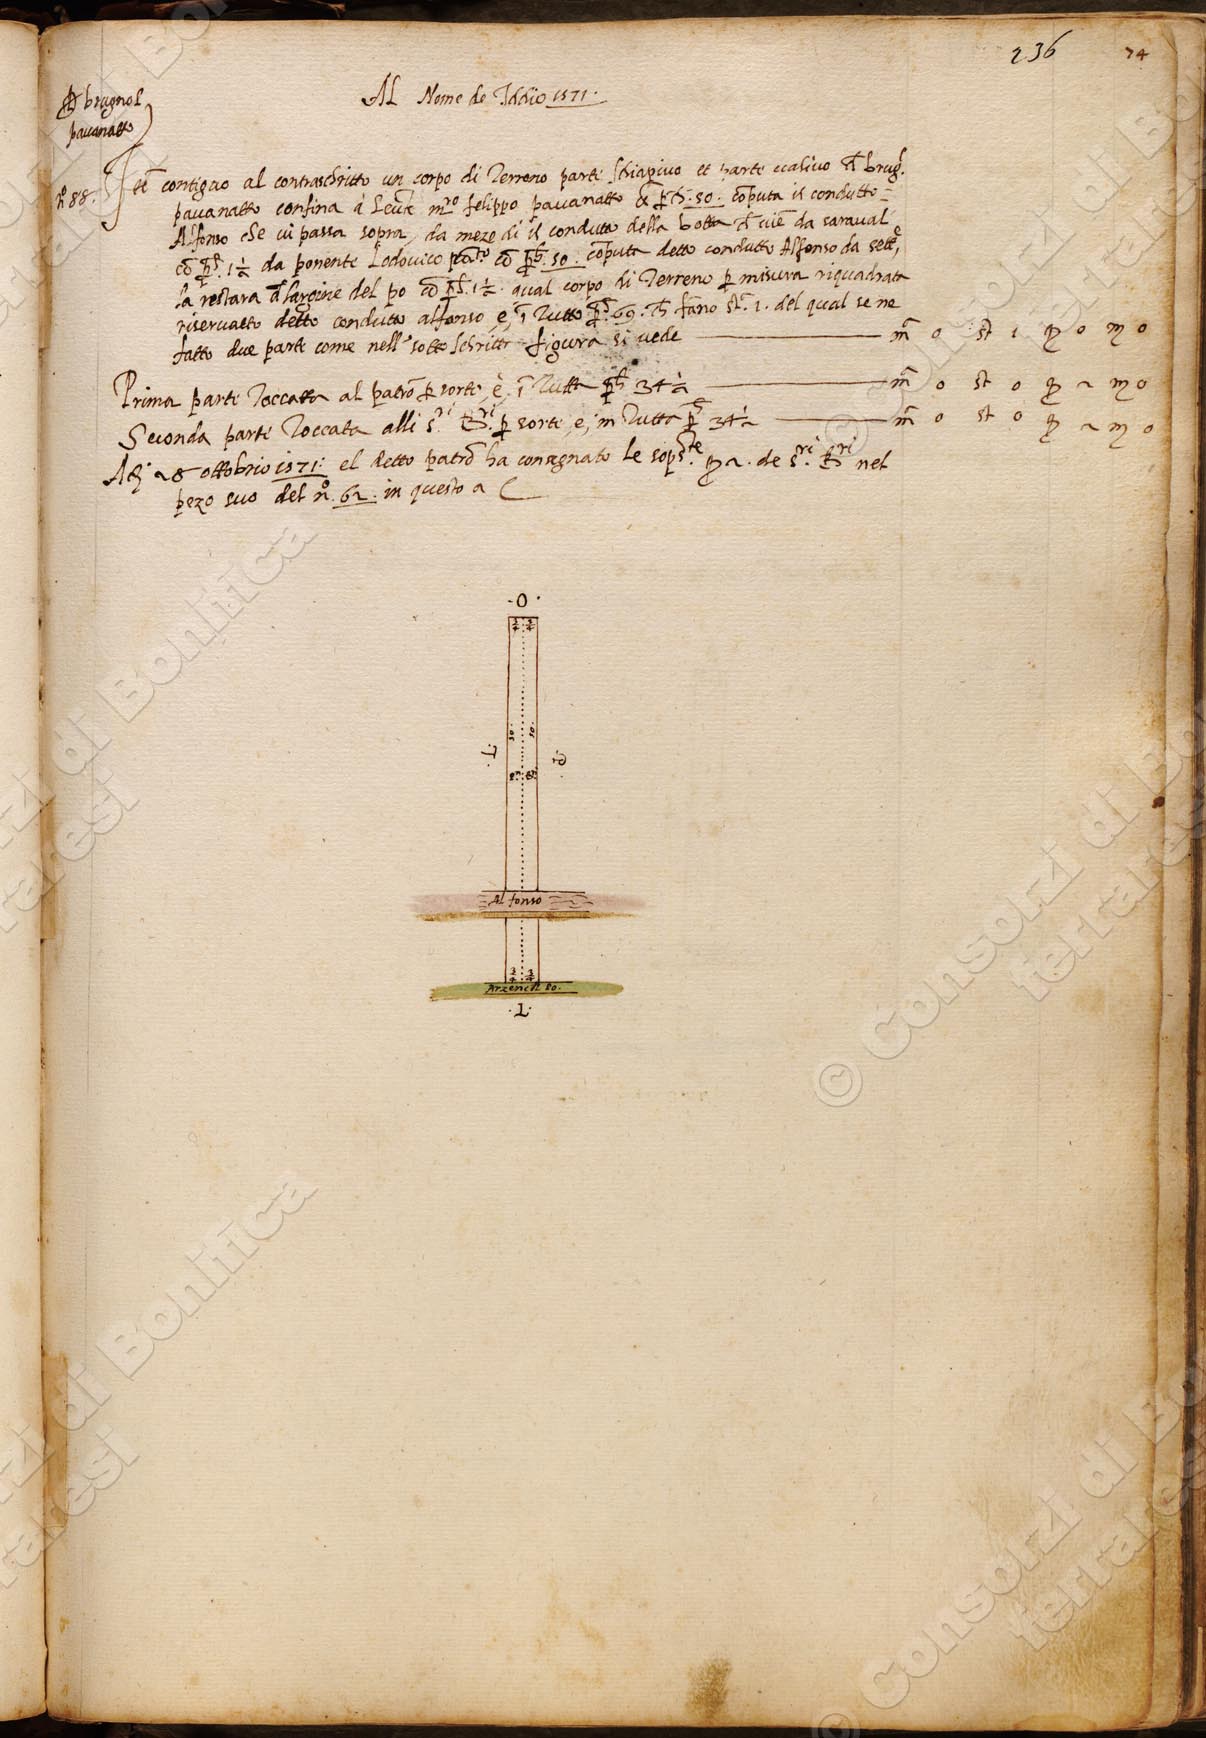 236 74
Al Nome de Iddio 1571.
brugnol
pauanatto
n.º 88.
Itē contiguo al contraschritto un corpo di Terreno parte Schiapiuo et parte ualiuo brugl.
pauanatto confina à Leuāte m.ro felippo pauanatto 50. cōputa il condutto
Alfonso che ui passa sopra, da meze di il condutto della botta viē da saraual
cō 1½ da ponente Lodouico cō 50. cōputa detto condutto Alfonso da sette
la restara à l'argine del po cō 1½. qual corpo di Terreno p misura riquadrata
riseruatto detto condutto alfonso, è, ī Tutto 69. fano st.ª 1. del qual se ne
fatto due parte come nell sotto schritta figura si vede m 0 st 1 0 0
Prima parte Toccatta al patrō p sorte, è, ī Tutta 34½ m 0 st 0 2 0
Seconda parte Toccata alli s.ri p sorte, è, in Tutta 34½ m 0 st 0 2 0
Adi 28 ottobrio 1571. el detto patrō ha consegnato le sops.te 2. de s.ri nel
pezo suo del n.º 62. in questo a
.O.
¾ ¾
.L. 50. 50. .P.
Alfonso
¾ ¾
Arzene di po.
.L.
© Consorzi di Bonifica
ferraresi